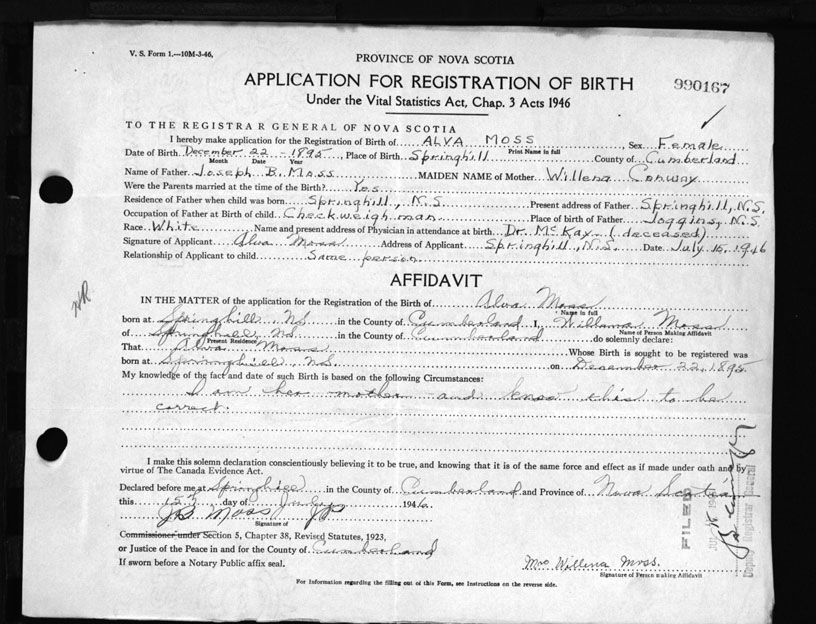 V. S. Form 1.—10M-3-46,
PROVINCE OF NOVA SCOTIA
APPLICATION FOR REGISTRATION OF BIRTH
990167
Under the Vital Statistics Act, Chap. 3 Acts 1946
TO THE REGISTRAR GENERAL OF NOVA SCOTIA
I hereby make application for the Registration of Birth of ALVA MOSS, Sex Female
Print Name in full
Date of Birth December 22 - 1895, Place of Birth Springhill County of Cumberland
Month Date Year
Name of Father Joseph B. Moss MAIDEN NAME of Mother Willena Conway
Were the Parents married at the time of the Birth? Yes
Residence of Father when child was born Springhill, N.S. Present address of Father Springhill, N.S.
Occupation of Father at Birth of child Checkweighman Place of birth of Father Joggins, N.S.
Race White Name and present address of Physician in attendance at birth Dr. McKay - (deceased)
Signature of Applicant Alva Moss Address of Applicant Springhill, N.S. Date July 15, 1946
Relationship of Applicant to child Same person
AFFIDAVIT
IN THE MATTER of the application for the Registration of the Birth of Alva Moss
Name in full
born at Springhill NS in the County of Cumberland I, Willena Moss
Name of Person Making Affidavit
of Springhill NS in the County of Cumberland do solemnly declare:
Present Residence
That Alva Moss Whose Birth is sought to be registered was
born at Springhill NS. on December 22, 1895
My knowledge of the fact and date of such Birth is based on the following Circumstances:
I am her mother and know this to be
correct.
I make this solemn declaration conscientiously believing it to be true, and knowing that it is of the same force and effect as if made under oath and by
virtue of The Canada Evidence Act.
Declared before me at Springhill in the County of Cumberland and Province of Nova Scotia
this 15th day of July 1946.
JB Moss JP
Signature of
Commissioner under Section 5, Chapter 38, Revised Statutes, 1923,
or Justice of the Peace in and for the County of Cumberland
If sworn before a Notary Public affix seal.
Mrs Willena Moss.
Signature of Person making Affidavit
For Information regarding the filling out of this Form, see Instructions on the reverse side.
FILED
Deputy Registrar General